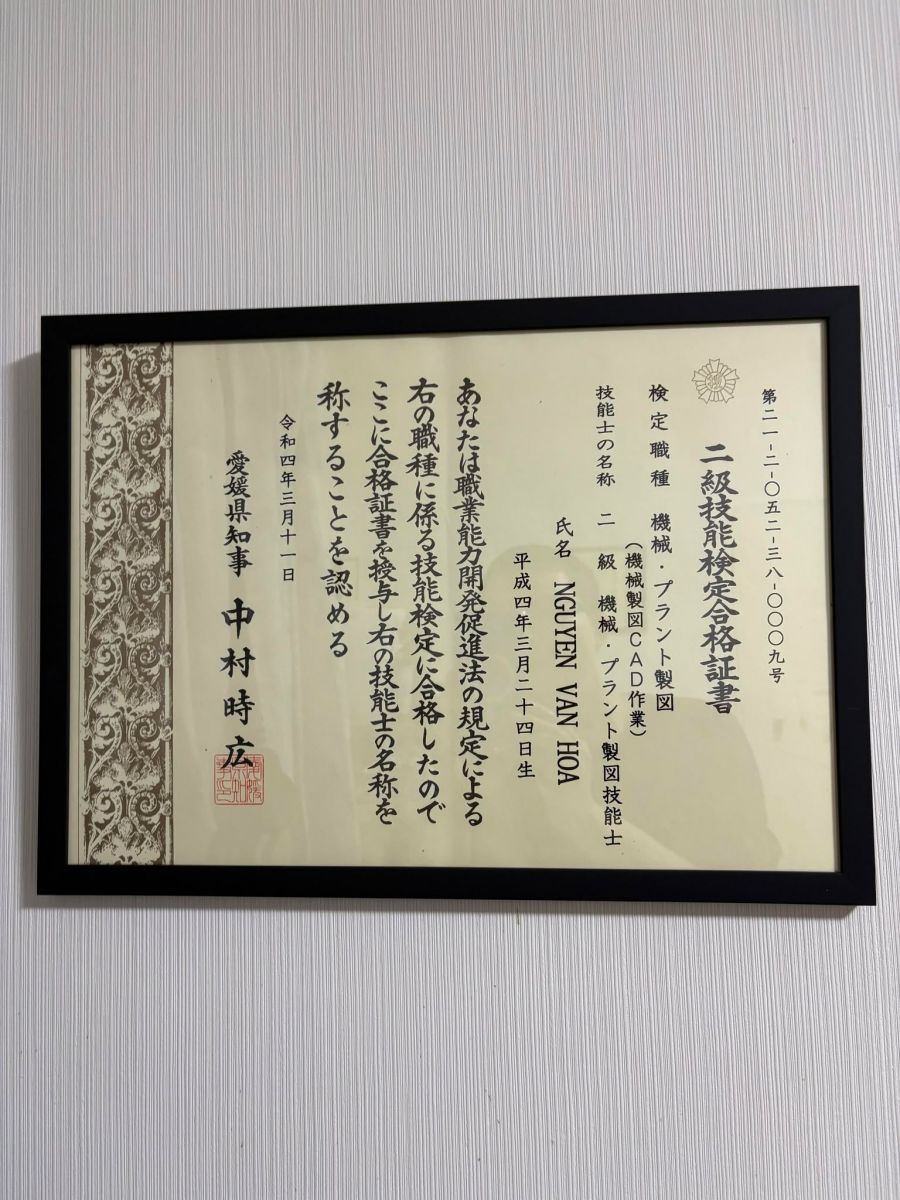 第二一-二-〇五二-三八-〇〇〇九号
二級技能検定合格証書
検定職種 機械・プラント製図
(機械製図CAD作業)
技能士の名称 二級 機械・プラント製図技能士
氏名 NGUYEN VAN HOA
平成四年三月二十四日生
あなたは職業能力開発促進法の規定による
右の職種に係る技能検定に合格したので
ここに合格証書を授与し右の技能士の名称を
称することを認める
令和四年三月十一日
愛媛県知事 中村時広